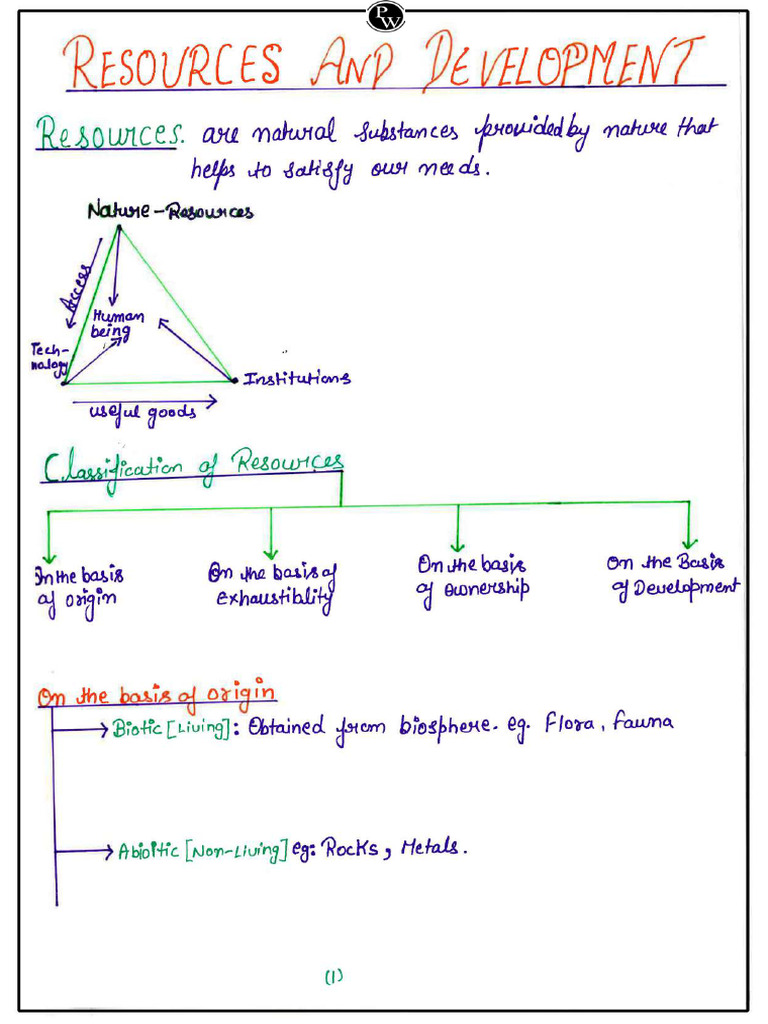 PW
RESOURCES AND DEVELOPMENT
Resources. are natural substances provided by nature that
helps to satisfy our needs.
Nature-Resources
Access
Human
being
Tech-
nology
Institutions
useful goods
Classification of Resources
On the basis
of origin
On the basis of
exhaustiblity
On the basis
of ownership
On the Basis
of Development
On the basis of origin
Biotic [Living]: Obtained from biosphere. eg. Flora, Fauna
Abioitic [Non-Living] eg: Rocks, Metals.
(1)